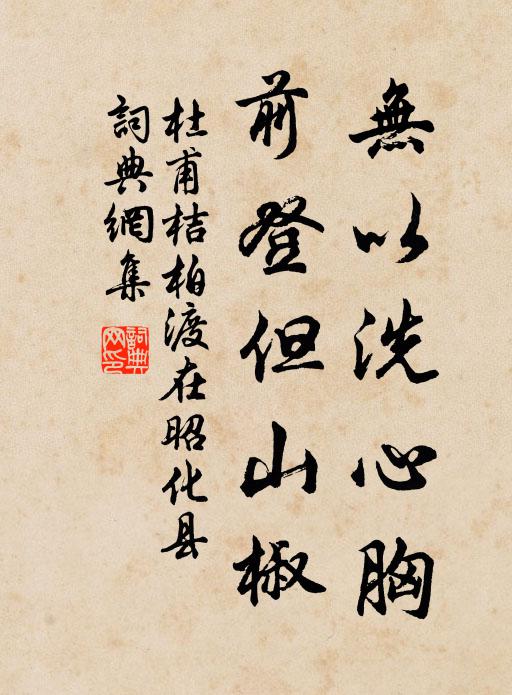 無以洗心胸
前登但山椒
杜甫桔柏渡在昭化县
詞典網集
詞典網印